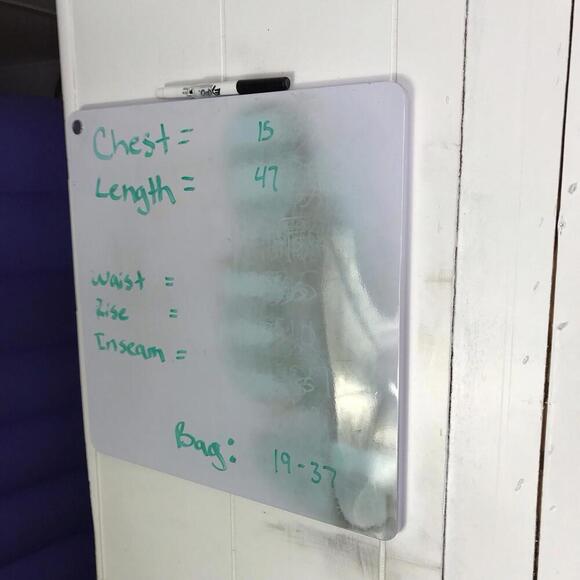 EXPO
Chest = 15
Length = 47
Waist =
Rise =
Inseam =
Bag: 19-37